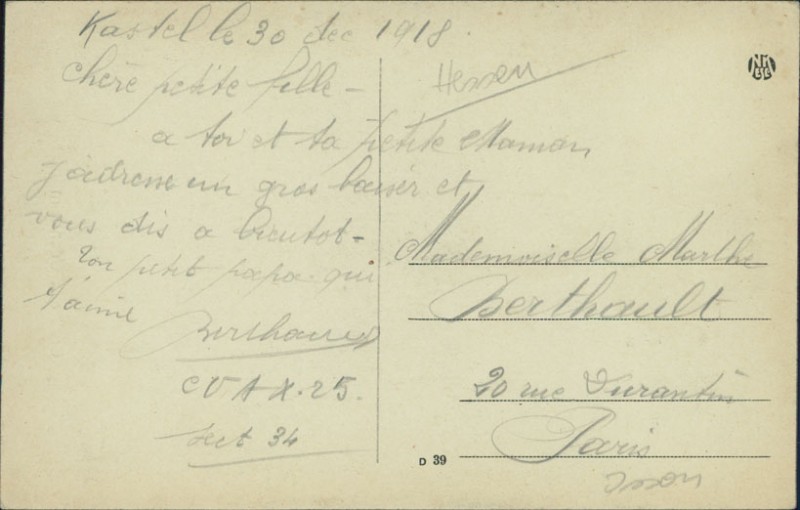 Kastel le 30 dec 1918.
Chère petite fille -
a toi et ta petite Maman
j'adresse un gros baiser et
vous dis a bientot -
ton petit papa qui
t'aime
Berthault
CVAX. 25.
sect 34
Hessen
Mademoiselle Marthe
Berthault
20 rue Durantin
Paris
D 39